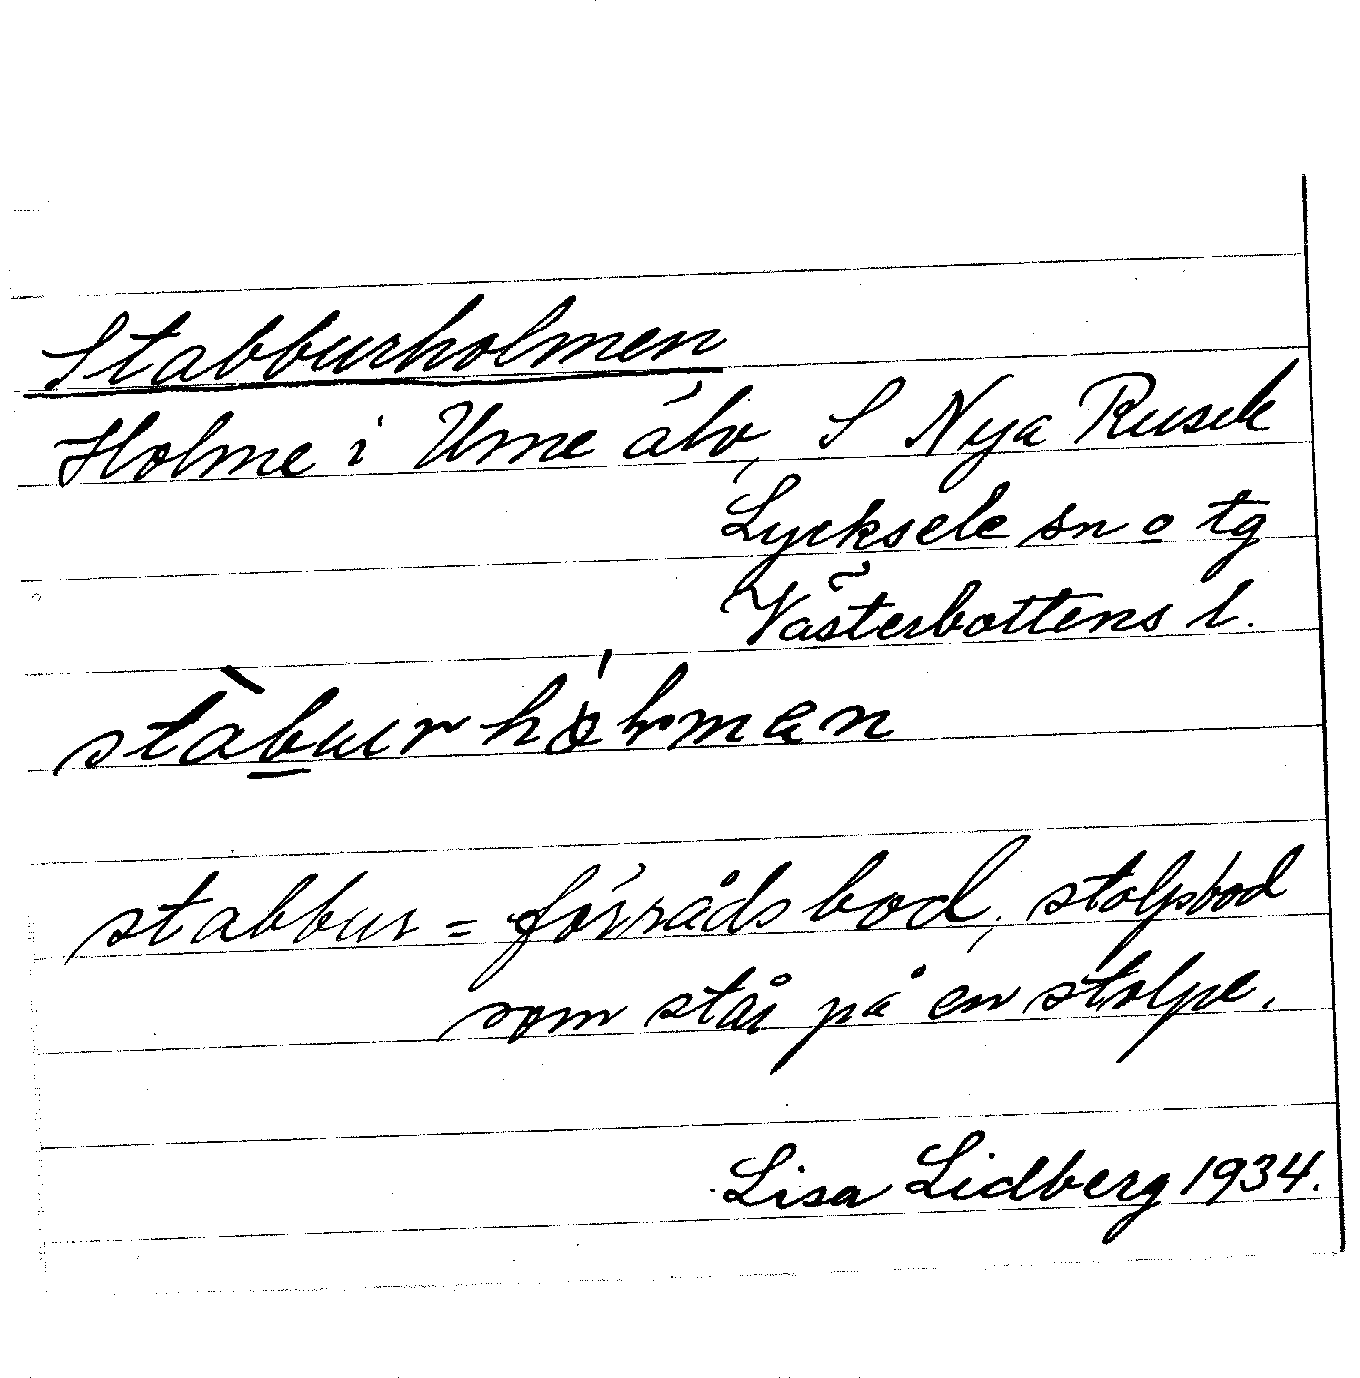 Stabburholmen
Holme i Ume älv, S Nya Rusele
Lycksele sn o tg
Västerbottens l.
stàburhólman
stabbur = förrådsbod, stolpbod
som står på en stolpe.
Lisa Lidberg 1934.